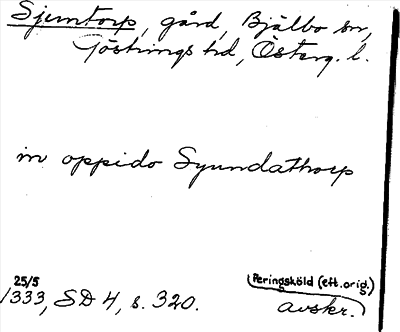 Sjuntorp, gård, Bjälbo sn,
Göstrings hd, Österg. l.
in oppido Syundathorp
25/5
1333, SD 4, s. 320.
Peringsköld (eft. orig.)
avskr.